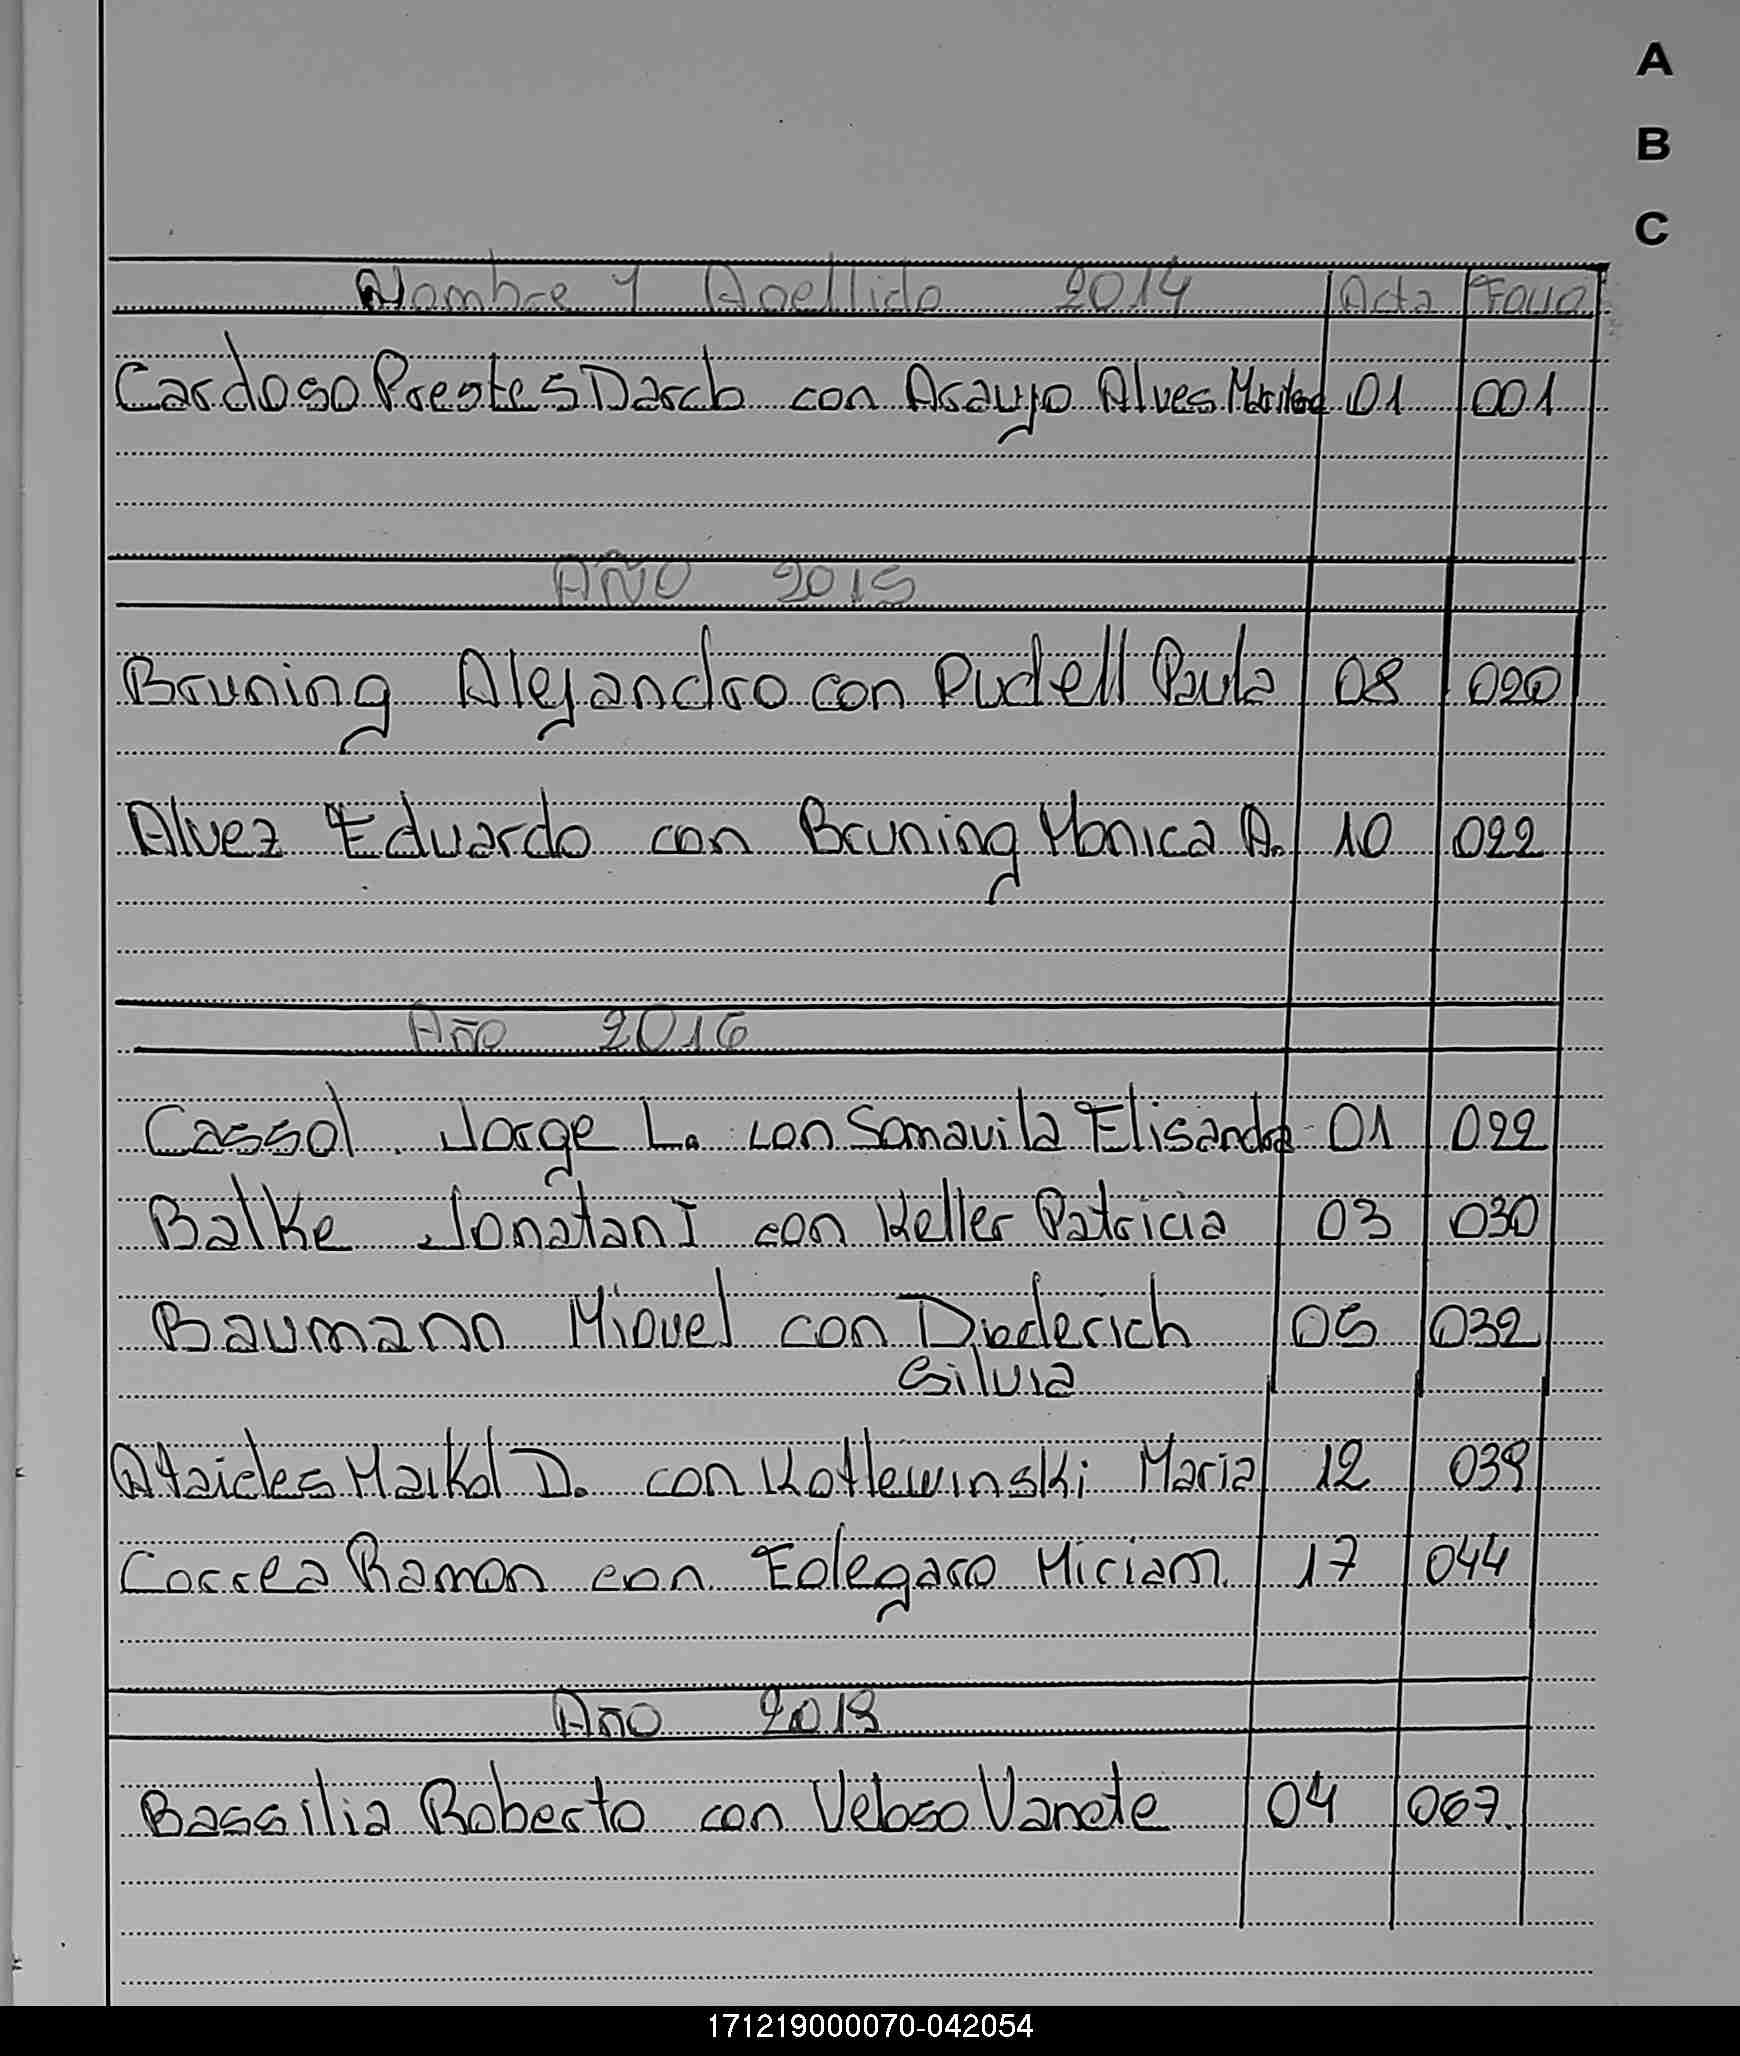 A
B
C
Nombre y Apellido 2014 Acta Folio
Cardoso Prestes Darcb con Araujo Alves 01 001
AÑO 2015
Bruning Alejandro con Pudell Paula 08 020
Alvez Eduardo con Bruning Monica A. 10 022
Año 2016
Cassol Jorge L. con Somavila Elisandra 01 022
Batke Jonatan I con Keller Patricia 03 030
Baumann Miguel con Diederich 05 032
Silvia
Ataides Maikol D. con Kotlewinski Maria 12 039
Correa Ramon con Folegaro Miriam 17 044
Año 2018
Bassilia Roberto con Veloso Vanete 04 067
171219000070-042054